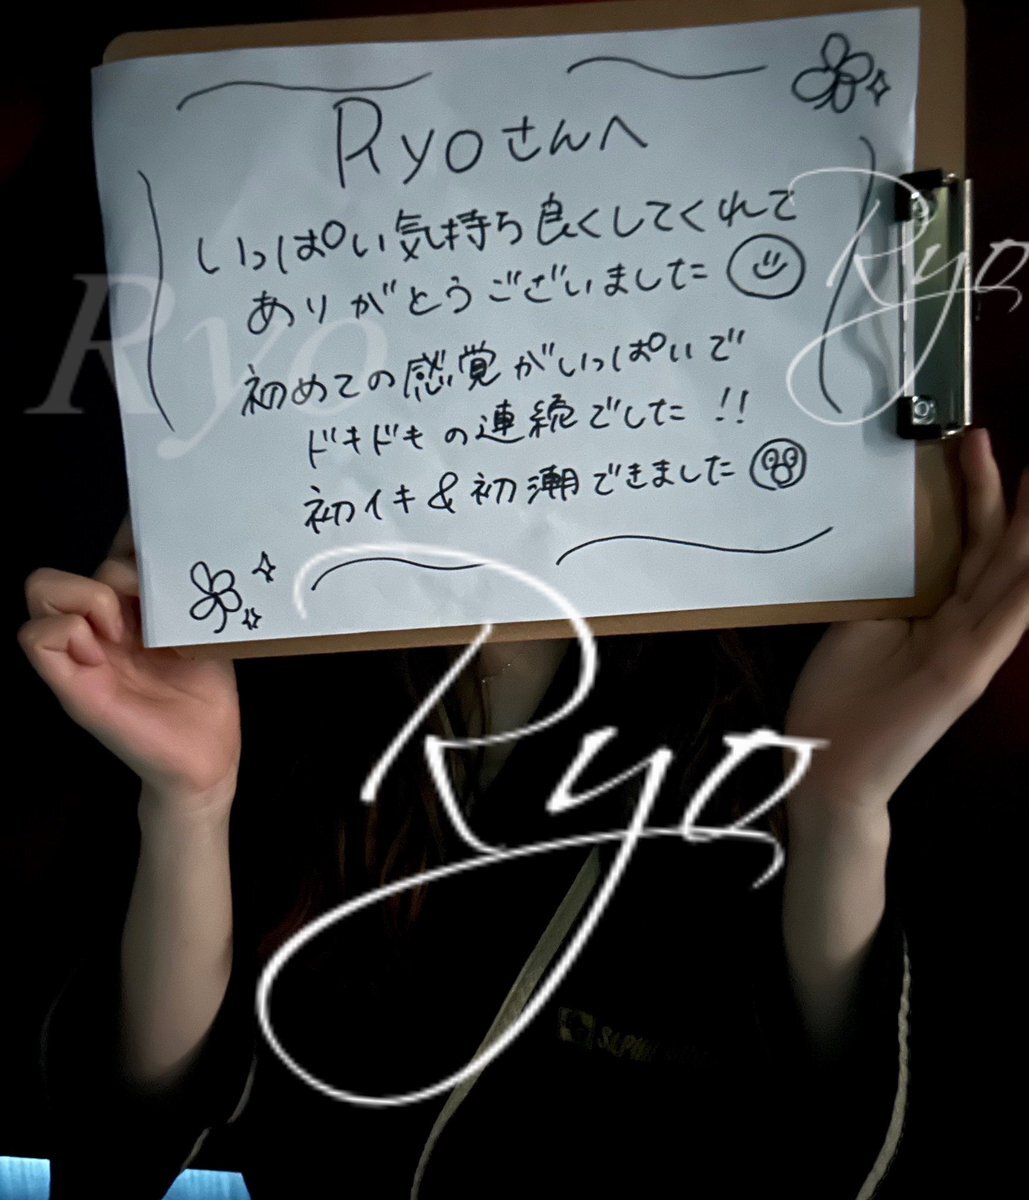 Ryoさんへ
いっぱい気持ち良くしてくれて
ありがとうございました
初めての感覚がいっぱいで
ドキドキの連続でした!!
初イキ&初潮できました
Ryo
Ryo
Ryo